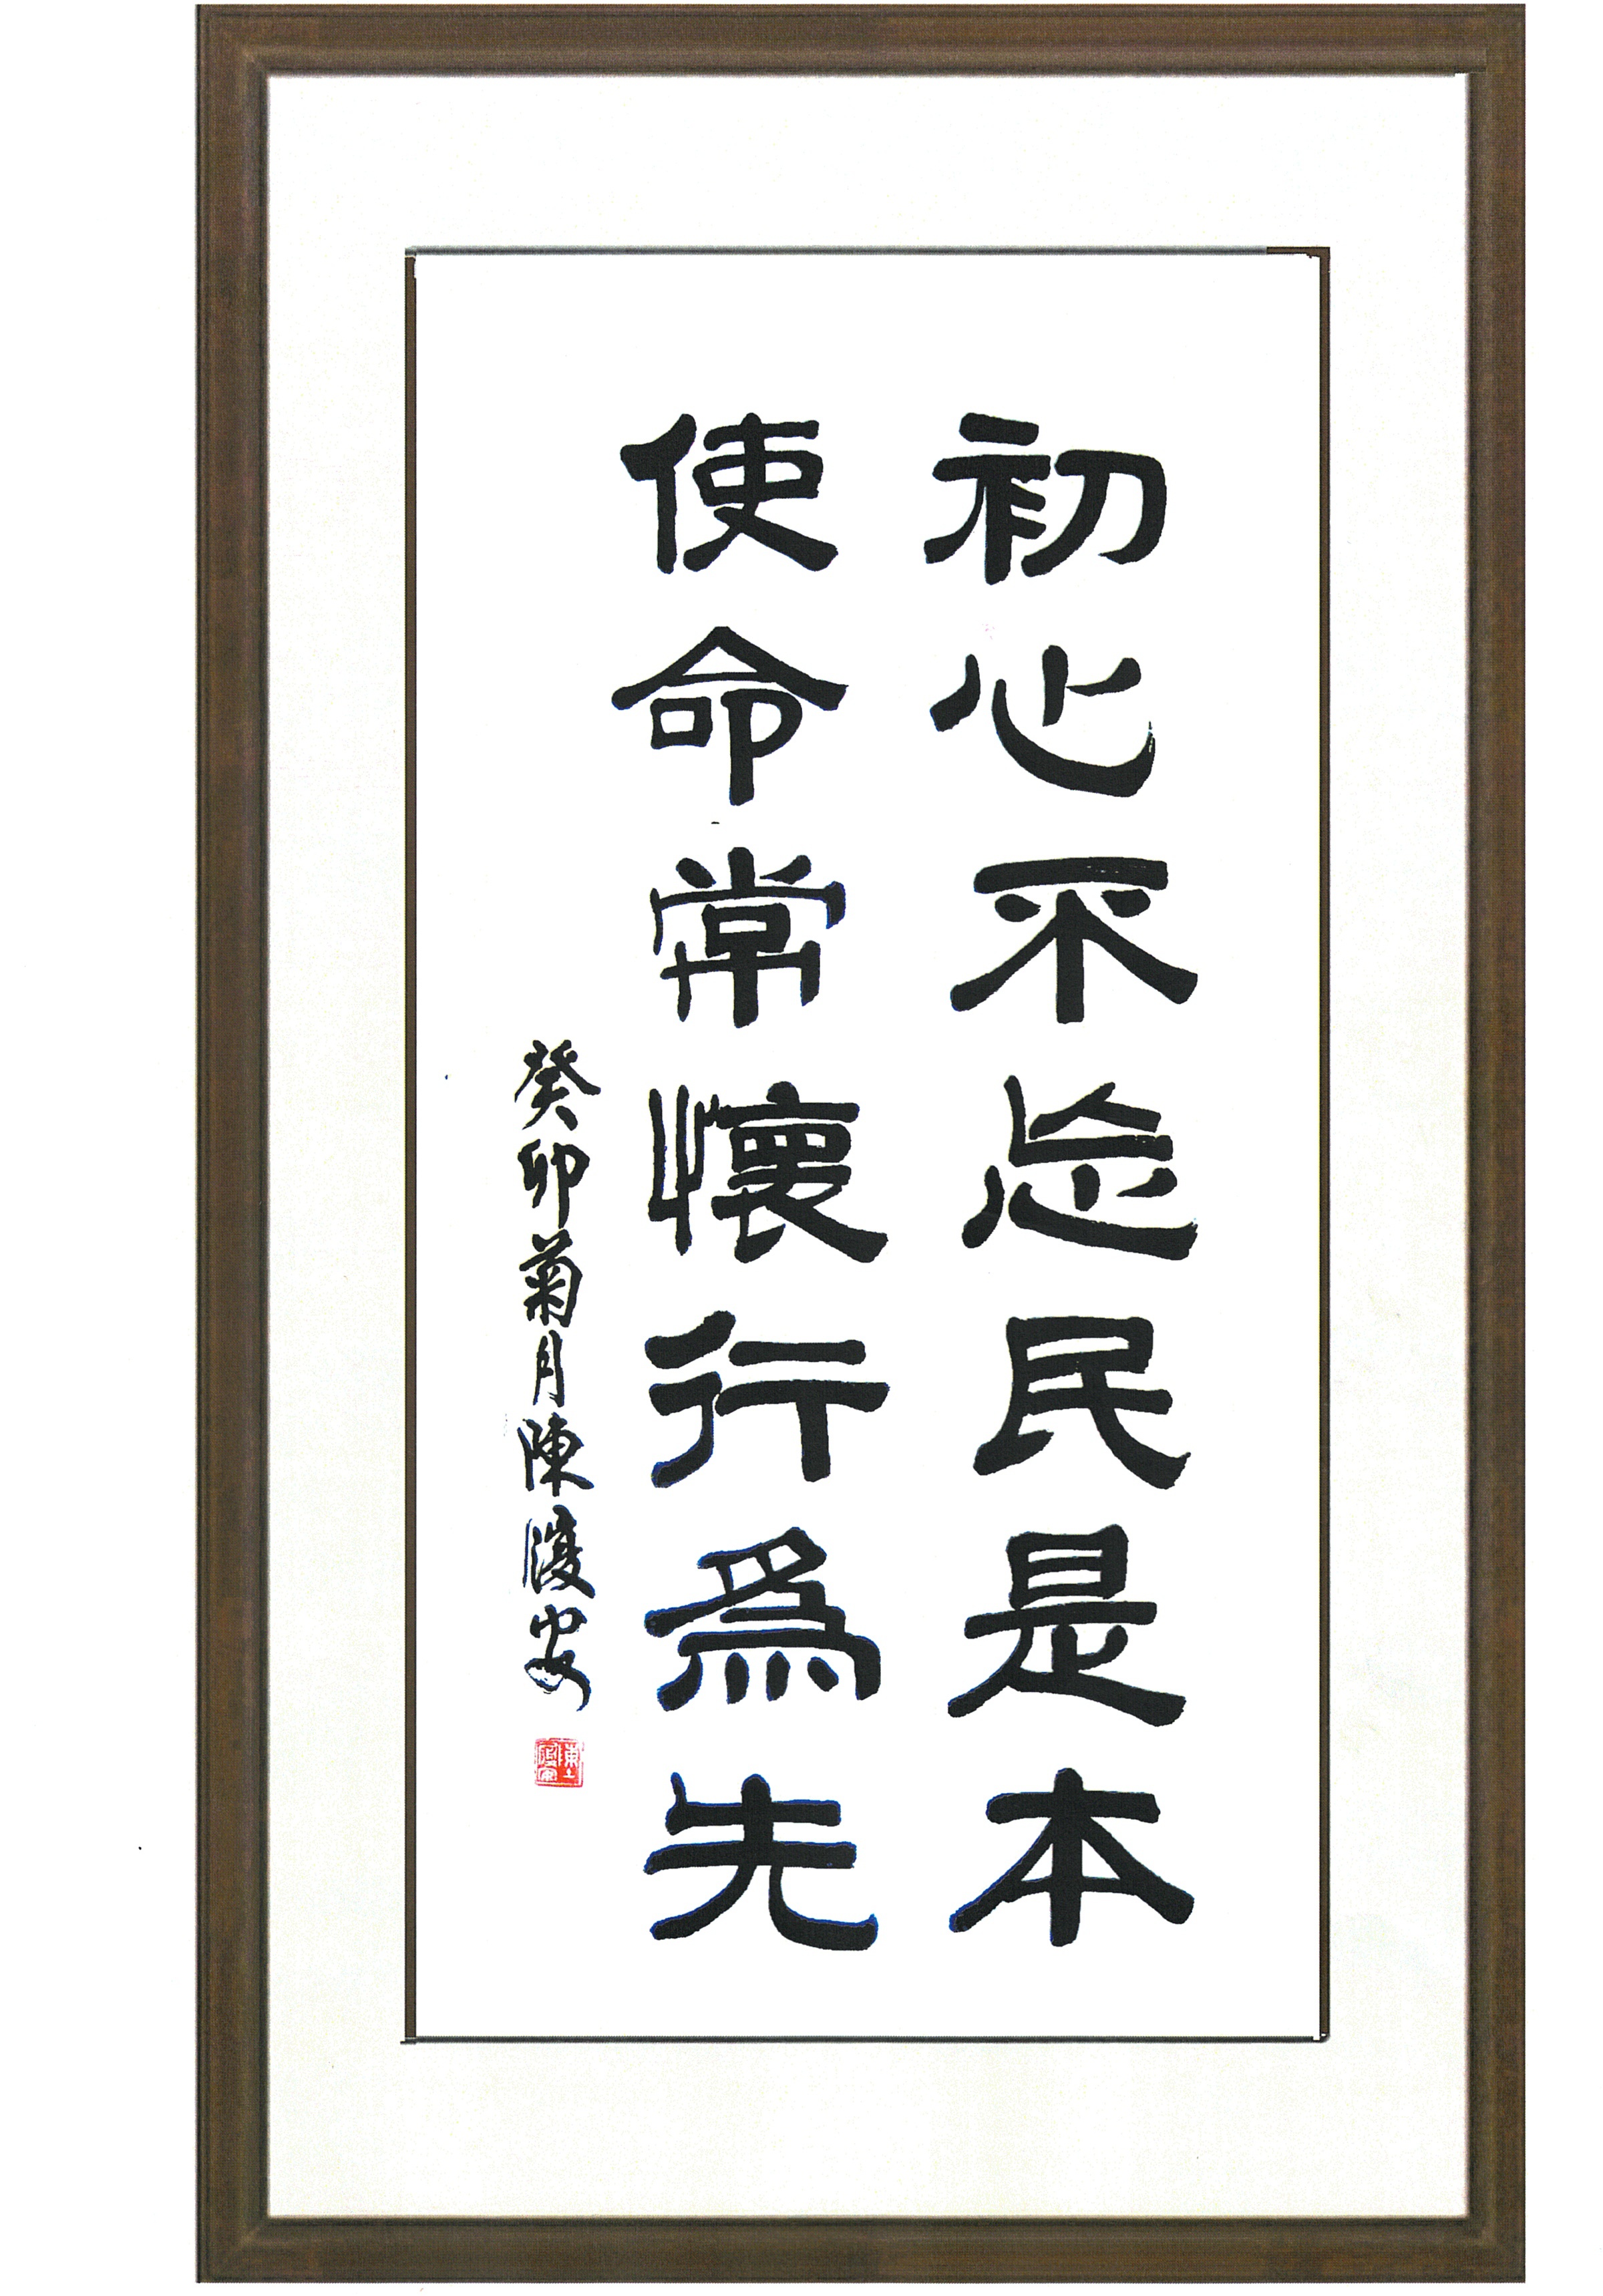 初心不忘民是本
使命常懷行為先
癸卯菊月陳渡安